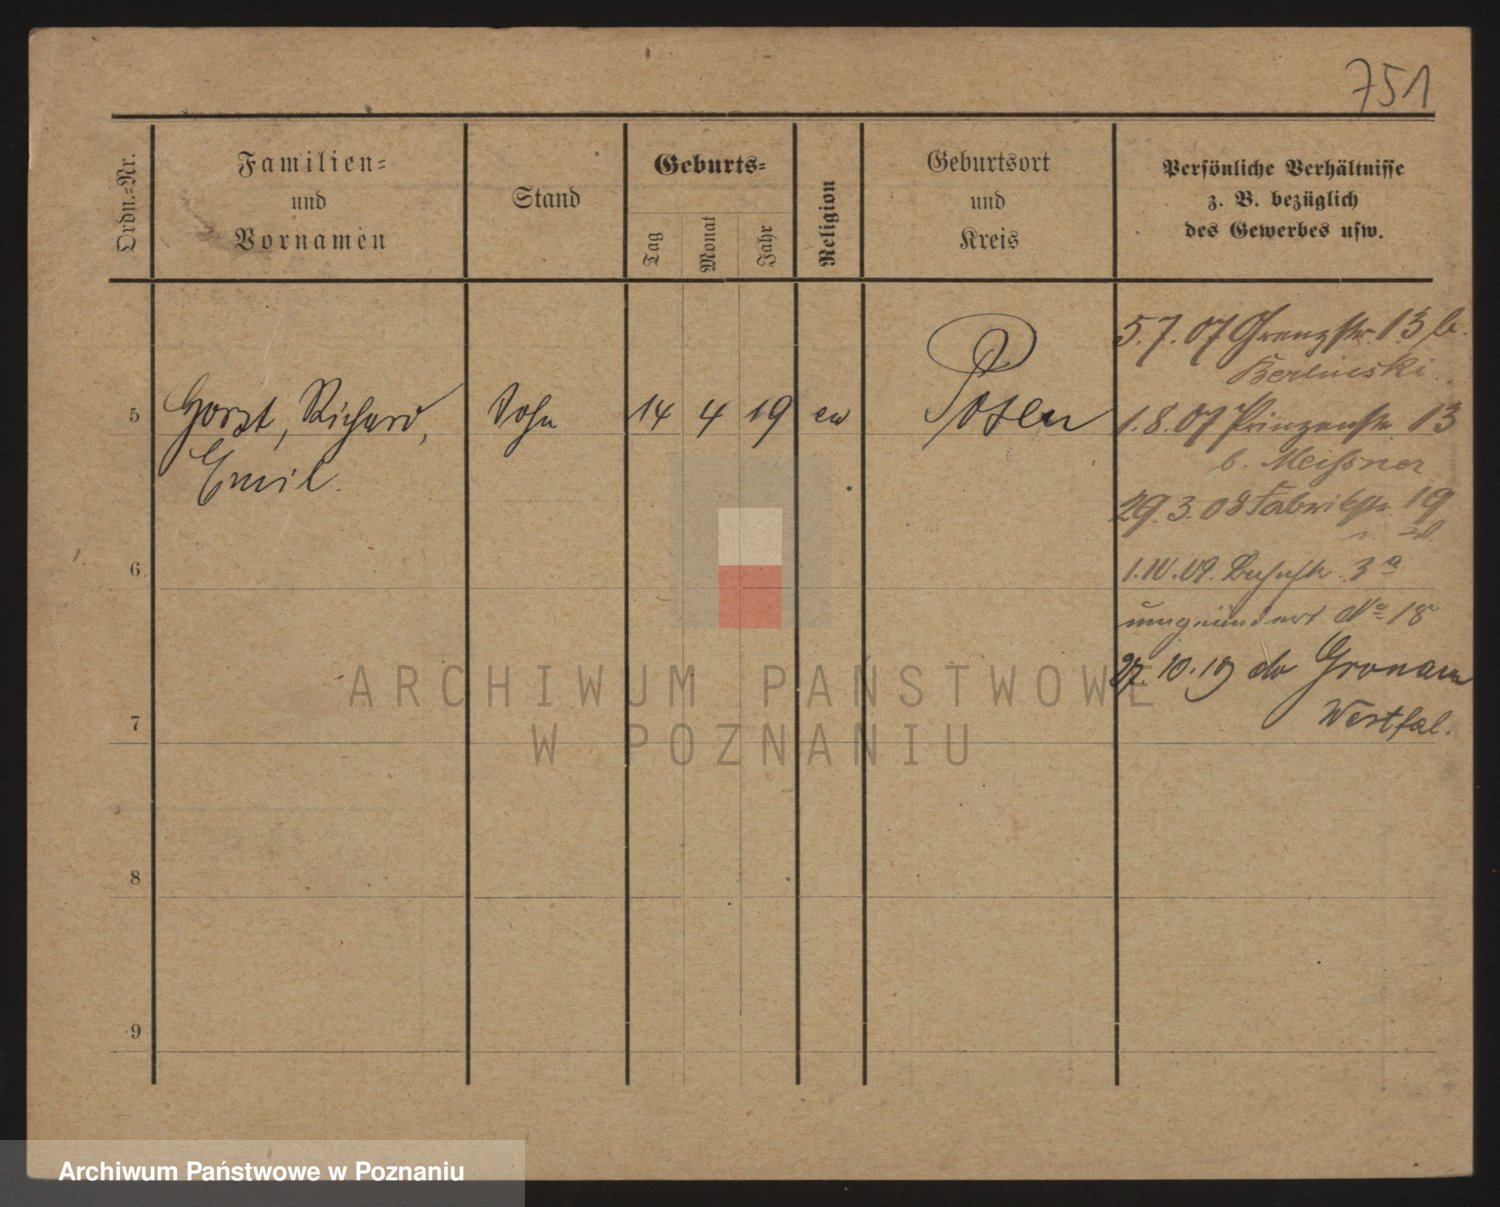 751
Ordn.-Nr.
Familien-
und
Vornamen
Stand
Geburts-
Tag
Monat
Jahr
Religion
Geburtsort
und
Kreis
Persönliche Verhältnisse
z. B. bezüglich
des Gewerbes usw.
5.7.07 Grenzstr. 13 b.
Berlinski
5 Horst, Richard, Sohn 14 4 19 ev Posen
Emil.
1.8.07 Prinzenstr. 13
b. Meissner
29.3.08 Fabrikstr. 19
6
1.IV.09. 3a
umgeändert No 18
27.10.19 do Gronau
Westfal.
7
8
9
ARCHIWUM PAŃSTWOWE
W POZNANIU
Archiwum Państwowe w Poznaniu